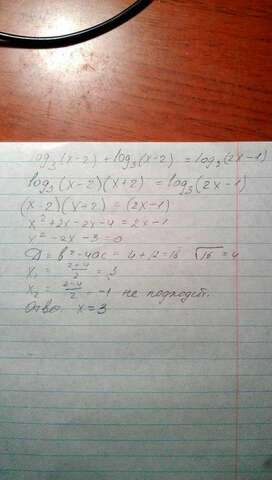 log₃(x-2) + log₃(x-2) = log₃(2x-1)
log₃(x-2)(x+2) = log₃(2x-1)
(x-2)(x+2) = (2x-1)
x² + 2x - 2x - 4 = 2x - 1
x² - 2x - 3 = 0
D = b² - 4ac = 4 + 12 = 16 √16 = 4
x₁ = (2+4)/2 = 3
x₂ = (2-4)/2 = -1 не подходит.
Ответ x = 3